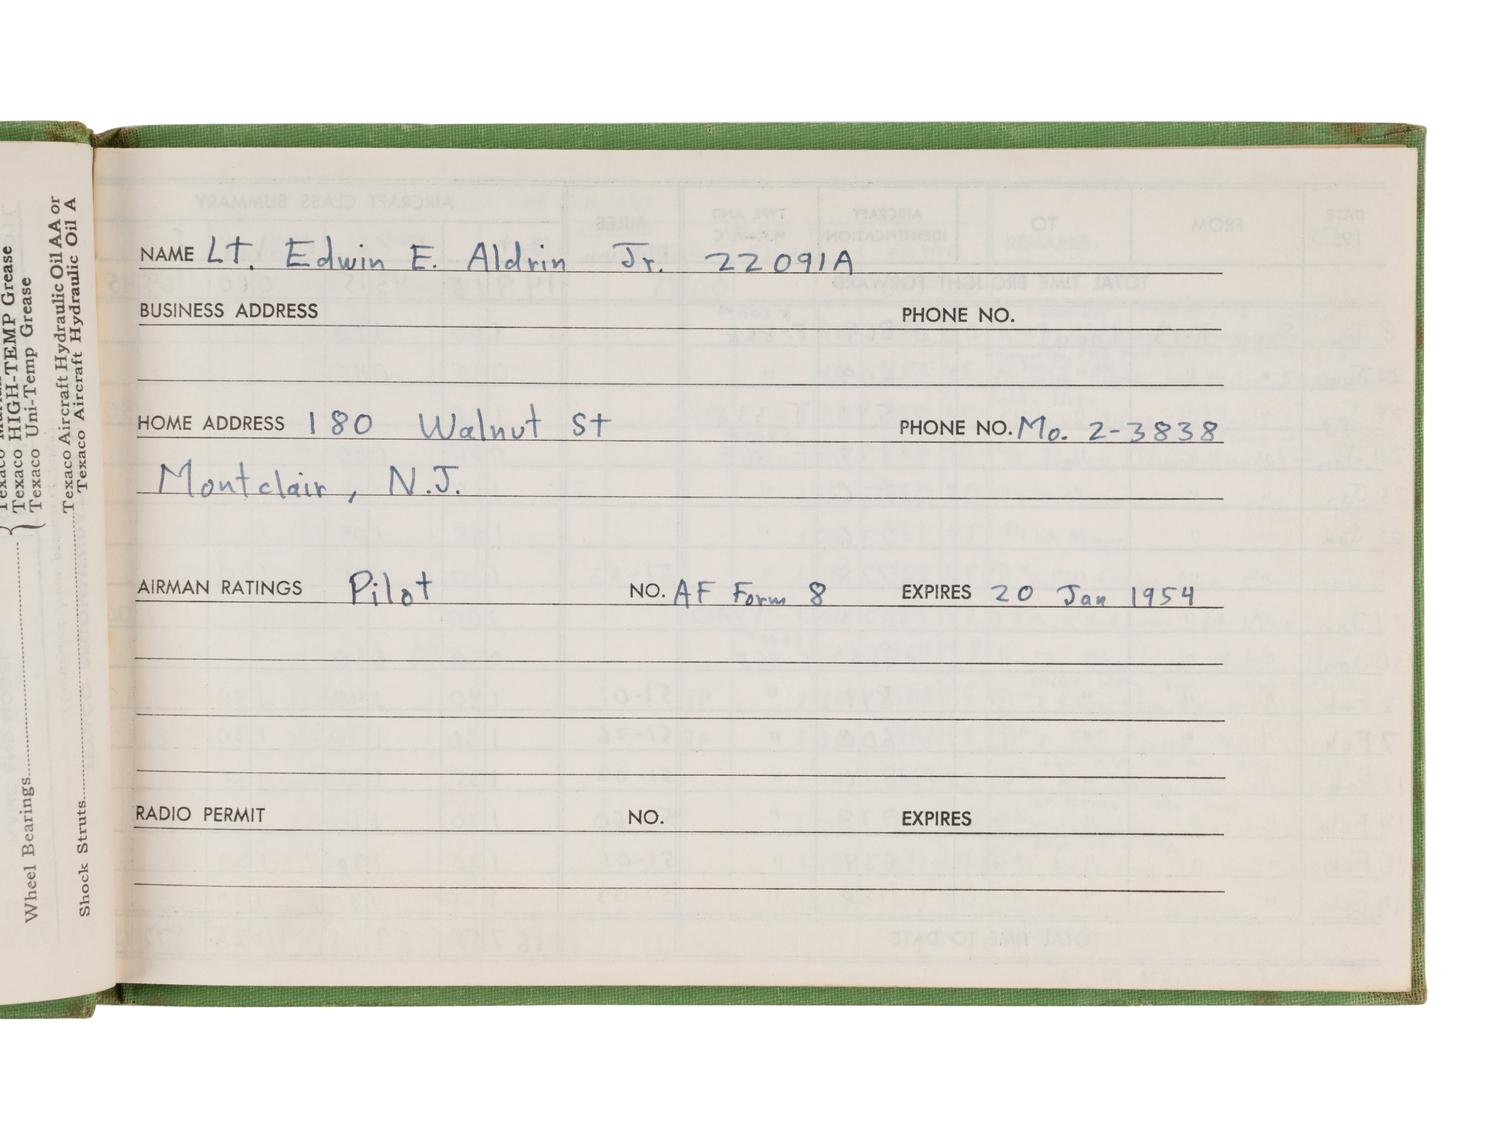 Texaco HIGH-TEMP Grease
Texaco Uni-Temp Grease
Texaco Aircraft Hydraulic Oil AA or
Texaco Aircraft Hydraulic Oil A
Wheel Bearings
Shock Struts
NAME Lt. Edwin E. Aldrin Jr. 22091A
BUSINESS ADDRESS PHONE NO.
HOME ADDRESS 180 Walnut St PHONE NO. Mo. 2-3838
Montclair, N.J.
AIRMAN RATINGS Pilot NO. AF Form 8 EXPIRES 20 Jan 1954
RADIO PERMIT NO. EXPIRES